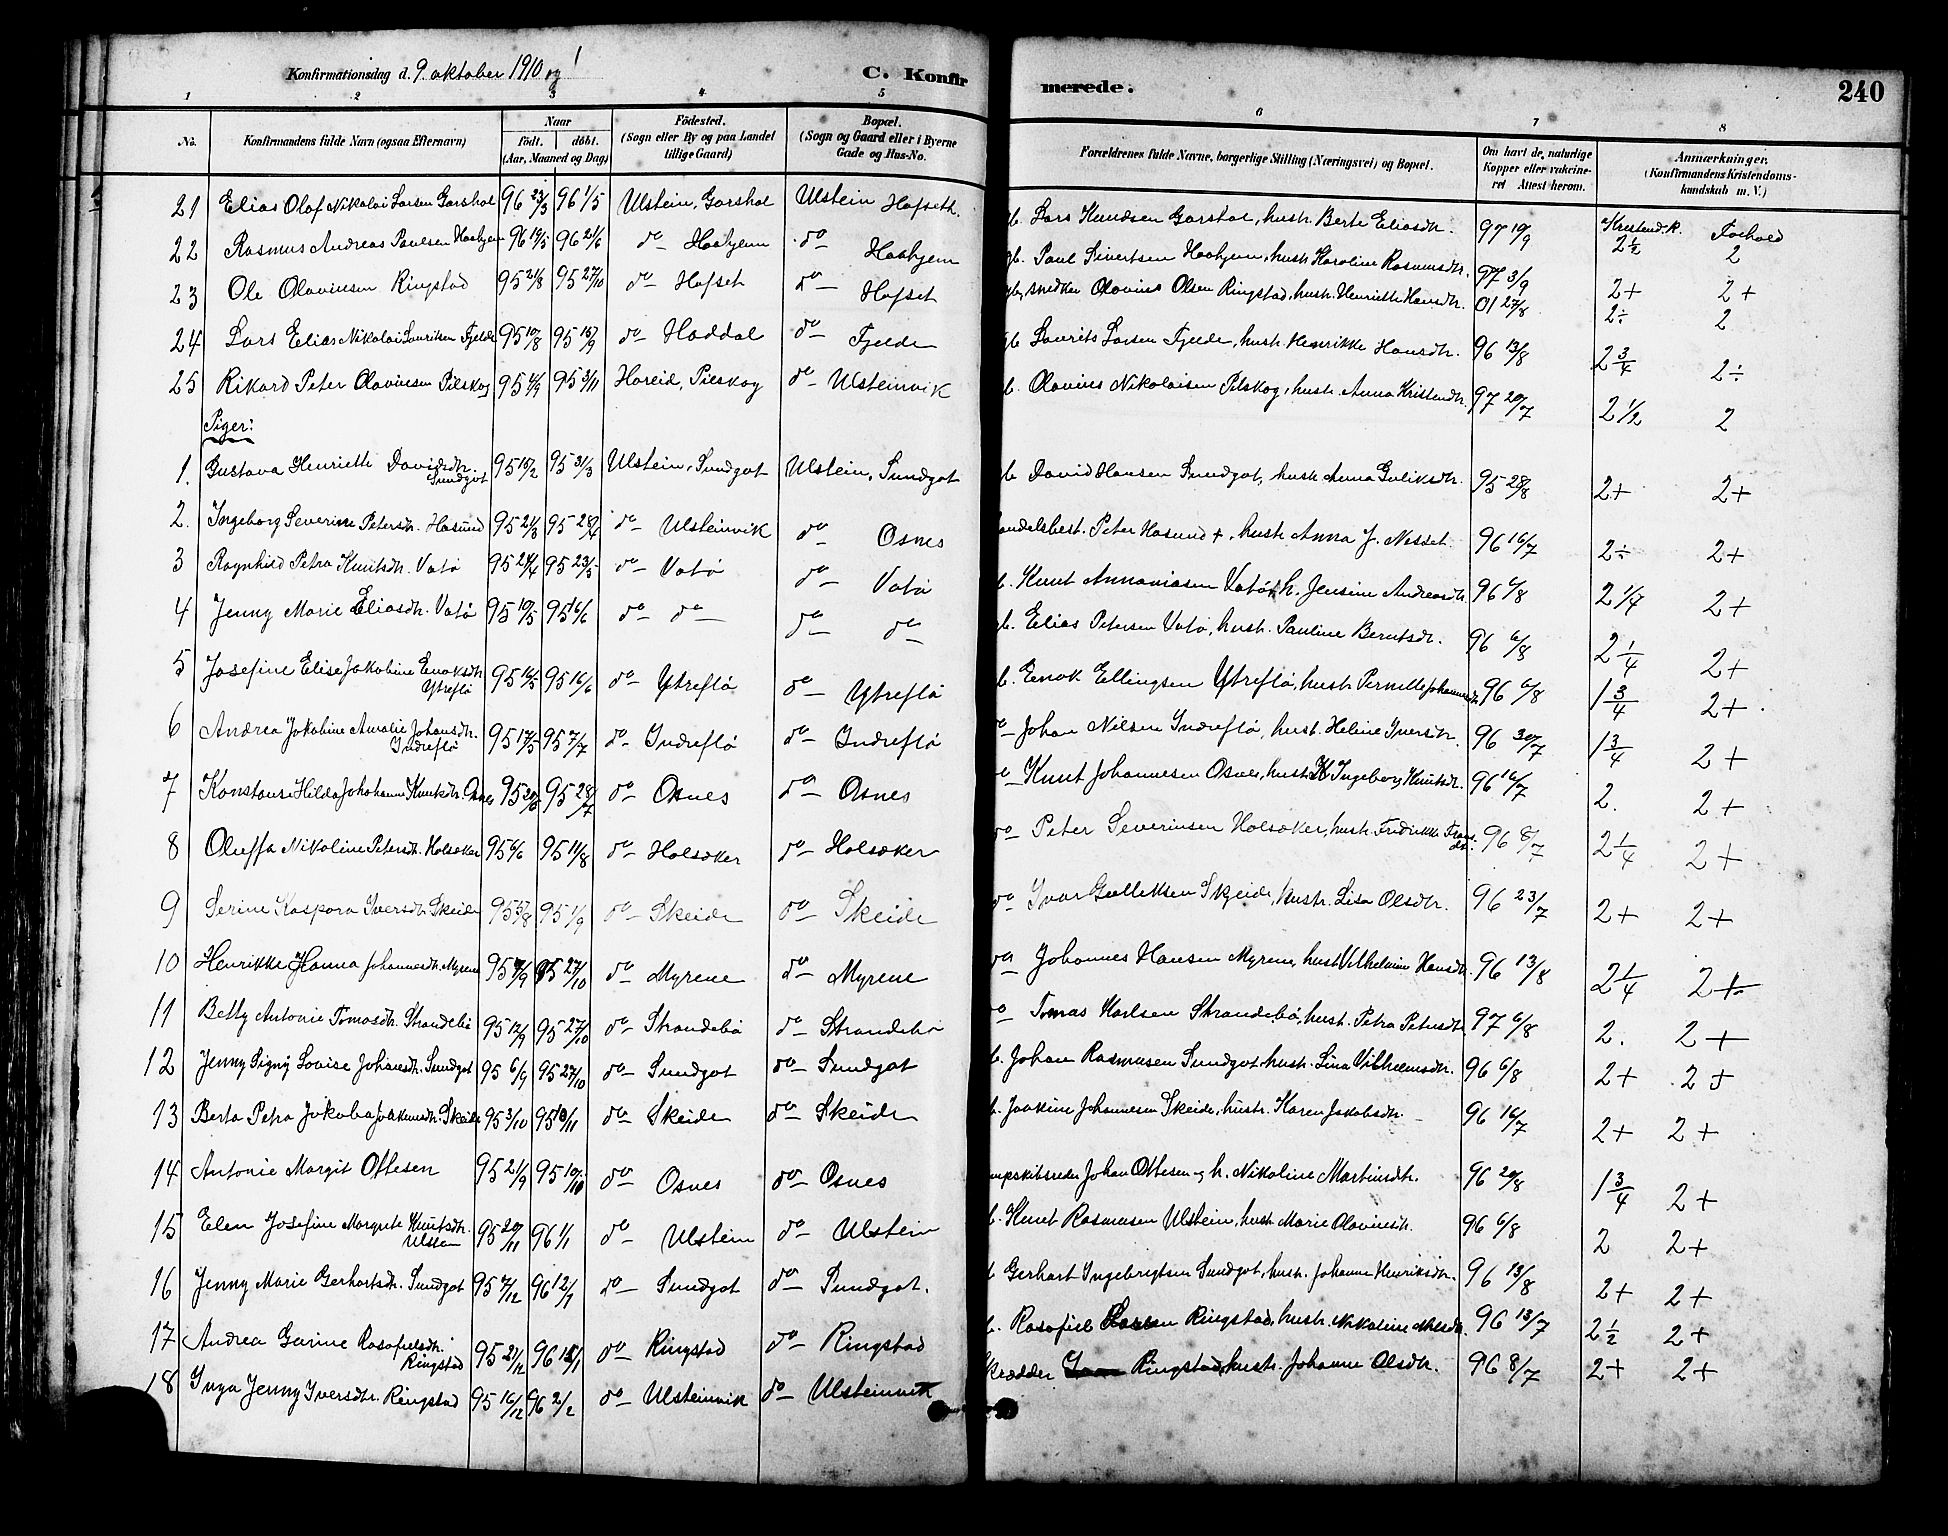 Konfirmationsdag d. 9. oktober 1910
C. Konfir merede. 240
1 2 3 4 5 6 7 8
No. Konfirmandens fulde Navn (ogsaa Efternavn) Naar födt. döbt. (Aar, Maaned og Dag) Födested. (Sogn eller By og paa Landet tillige Gaard) Bopæl. (Sogn og Gaard eller i Byerne Gade og Hus-No. Forældrenes fulde Navne, borgerlige Stilling (Næringsvei) og Bopæl. Om havt de naturlige Kopper eller vakcineret Attest herom. Anmærkninger. (Konfirmandens Kristendomskundskab m. V.)
Kristend.k. Forhold
21 Elias Olaf Nikolai Larsen Garshol 96 23/3 96 1/5 Ulstein, Garshol Ulstein Hofseth. Lars Knudsen Garshol, hustr. Berte Eliasdtr. 97 19/9 2 1/2 2
22 Rasmus Andreas Paulsen Haahjem 96 19/5 96 21/6 do Haahjem do Haahjem Paul Sivertsen Haahjem, hustr. Karoline Rasmusdtr. 97 3/9 2+ 2+
23 Ole Olavinsen Ringstad 95 21/8 95 27/10 do Hofset do Hofset snedker Olavius Olsen Ringstad, hustr. Henriette Hansdtr. 01 27/8 2÷ 2
24 Lars Elias Nikolai Lauritsen Fjelde 95 10/8 95 15/9 do Haddal do Fjelde Laurits Larsen Fjelde, hustr. Henrikke Hansdtr. 96 13/8 2 3/4 2÷
25 Rikard Peter Olavinsen Pilskog 95 95 3/11 Hareid, Pilskog do Ulsteinvik Olavius Nikolaisen Pilskog, hustr. Anna Kristendtr. 97 20/7 2 1/2 2
Piger:
1. Gustava Henriette Davidsdtr. Sundgot 95 15/2 95 31/3 Ulstein, Sundgot Ulstein, Sundgot David Hansen Sundgot, hustr. Anna Guliksdtr. 95 28/8 2+ 2+
2. Ingeborg Severine Petersdtr. Hasund 95 21/3 95 28/4 do Ulsteinvik do Osnes Peter Hasund +, hustr. Anna J. Nesset 96 16/7 2÷ 2+
3 Ragnhild Petra Knutsdtr. Vatø 95 24/4 95 23/5 do Vatø do Vatø Knut Annaniasen Vatø, h. Jensine Andreasdtr. 96 6/8 2 1/4 2+
4 Jenny Marie Eliasdtr. Vatø 95 19/5 95 16/6 do do do do Elias Petersen Vatø, hustr. Pauline Berntsdtr. 96 6/8 2 1/4 2+
5 Josefine Elise Jakobine Enoksdtr. Ytreflø 95 16/5 95 16/6 do Ytreflø do Ytreflø Enok Ellingsen Ytreflø, hustr. Pernille Johannesdtr. 96 6/8 1 3/4 2+
6 Andrea Jakobine Amalie Johansdtr. Indreflø 95 17/5 95 7/7 do Indreflø do Indreflø do Johan Nilsen Indreflø, hustr. Heline Iversdtr. 96 30/7 1 3/4 2+
7 Konstanse Hilda Johanne Knutsdtr. Osnes 95 95 28/7 do Osnes do Osnes do Knut Johannesen Osnes, hustr. Ingeborg Knutsdtr. 96 16/7 2. 2+
8 Oluffa Nikoline Petersdtr. Holsæker 95 6/6 95 11/8 do Holsæker do Holsæker do Peter Severinsen Holsæker, hustr. Fredrikke Fransdtr. 96 8/7 2 1/4 2+
9 Serine Kaspara Iversdtr. Skeide 95 95 1/9 do Skeide do Skeide do Ivar Gulliksen Skjeide, hustr. Lisa Olsdtr. 96 23/7 2+ 2+
10 Henrikke Hanna Johannesdtr. Myrene 95 95 27/10 do Myrene do Myrene do Johannes Hansen Myrene, hustr. Vilhelmine Hansdtr. 96 13/8 2 1/4 2+
11 Betty Antonie Tomasdtr. Strandebø 95 12/9 95 27/10 do Strandebø do Strandebø do Tomas Karlsen Strandebø, hustr. Petra Petersdtr. 97 6/8 2. 2+
12 Jenny Signy Lovise Johansdtr. Sundgot 95 6/9 95 27/10 do Sundgot do Sundgot Johan Rasmusen Sundgot, hustr. Lina Vilhelmsdtr. 96 6/8 2+ 2+
13 Berta Petra Jakoba Joakimsdtr. Skeide 95 3/10 95 10/11 do Skeide do Skeide Joakim Johannesen Skeide, hustr. Karen Jakobsdtr. 96 16/7 2+ 2+
14 Antonie Margit Ottesen 95 21/9 95 10/10 do Osnes do Osnes Johan Ottesen og h. Nikoline Martinsdtr. 96 20/8 1 3/4 2+
15 Elen Josefine Margrete Knutsdtr. Ulstein 95 20/11 96 1/1 do Ulstein do Ulstein Knut Rasmusen Ulstein, hustr. Marie Olavinsdtr. 96 6/8 2 2+
16 Jenny Marie Gerhartsdtr. Sundgot 95 7/12 96 12/1 do Sundgot do Sundgot. Gerhart Ingebrigtsen Sundgot, hustr. Johanne Henriksdtr. 96 13/8 2+ 2+
17 Andrea Gurine Rasofielsdtr. Ringstad 95 21/12 96 do Ringstad do Ringstad Rasofiel Ringstad, hustr. Nikoline Nilsdtr. 96 13/7 2 1/2 2+
18 Inga Jenny Iversdtr. Ringstad 95 16/12 96 2/2 do Ulsteinvik do Ulsteinvik Skrædder Ringstad, hustr. Johanne Olsdtr. 96 8/7 2+ 2+